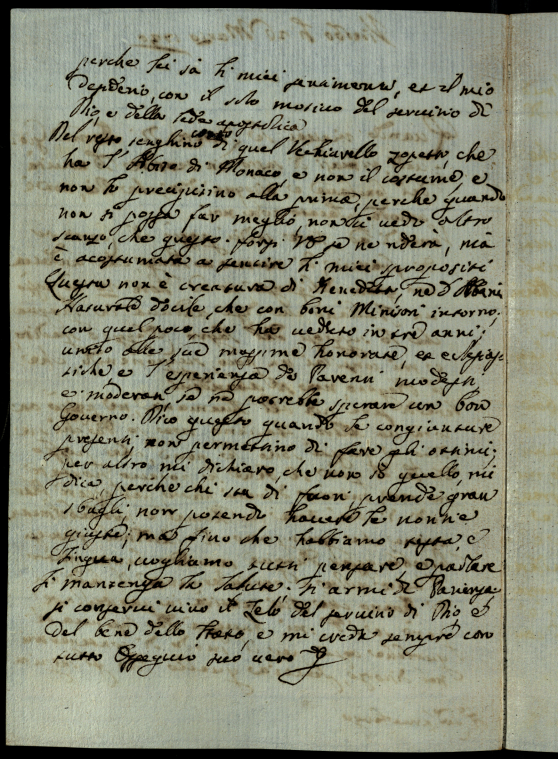 perche lei sà li miei sentimenti, et il mio
desiderio, con il solo motivo del servitio di
Dio, e della sede apostolica
Del resto senghino conto di quel Vechiarello zopetto, che
ha l' di Monaco, e non il costume, e
non lo precipitino alla prima, perche quando
non si possa far meglio, non ci vedo altro
scanzo, che questo. forsi VS se ne riderà, mà
è acostumata a sentire li miei spropositi
Questa non è creatura di Benedetto, ne d'Albani
Naturale docile, che con boni Ministri intorno,
con quel poco, che ha veduto in trè anni;
unito alle sue massime honorate, et
e l'esperienza de Parenti modesti,
e moderati se ne potrebbe sperare un bon
Governo. Dico questo quando le congiunture
presenti non permettino di fare gli ottimi;
per altro mi dichiaro, che non sò quello, mi
dica, perche chi sta di fuori prende gran
sbagli non potendo havere le notitie
giuste; ma fino che habbiamo testa, e
lingua, vogliamo tutti pensare, e parlare
li mantenga la salute; li armi de Patienza,
si conservi vivo il Zelo del servitio di Dio, e
del bene dello stato, e mi creda sempre con
tutto Ossequio suo vero